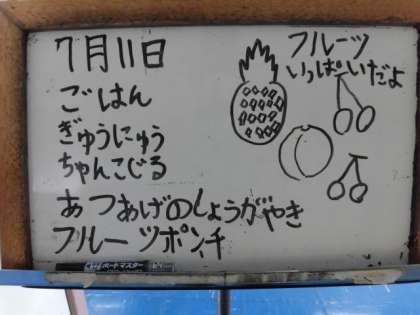 7月11日
ごはん
ぎゅうにゅう
ちゃんこじる
あつあげのしょうがやき
フルーツポンチ
フルーツ
いっぱいだよ
ボードマスター